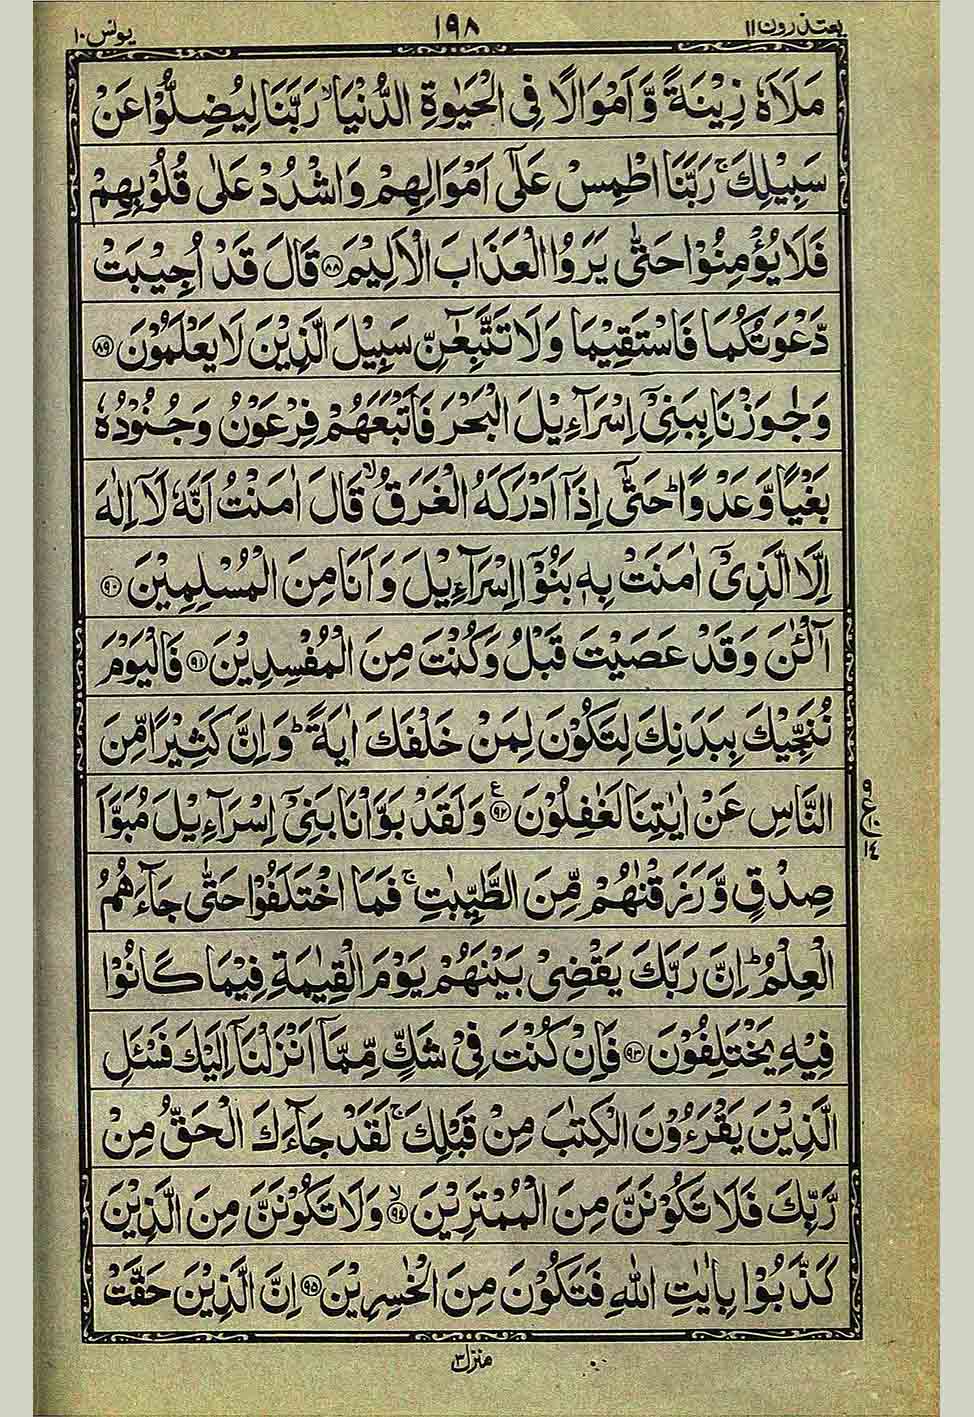 یعتذرون ۱۱ ۱۹۸ یونس ۱۰
مَلَاَهٗ زِیْنَةً وَّاَمْوَالًا فِی الْحَیٰوةِ الدُّنْیَا ۙ رَبَّنَا لِیُضِلُّوْا عَنْ
سَبِیْلِكَ ۚ رَبَّنَا اطْمِسْ عَلٰۤی اَمْوَالِهِمْ وَاشْدُدْ عَلٰی قُلُوْبِهِمْ
فَلَا یُؤْمِنُوْا حَتّٰی یَرَوُا الْعَذَابَ الْاَلِیْمَ ۝۸۸ قَالَ قَدْ اُجِیْبَتْ
دَّعْوَتُكُمَا فَاسْتَقِیْمَا وَلَا تَتَّبِعٰٓنِّ سَبِیْلَ الَّذِیْنَ لَا یَعْلَمُوْنَ ۝۸۹
وَجٰوَزْنَا بِبَنِیْۤ اِسْرَآءِیْلَ الْبَحْرَ فَاَتْبَعَهُمْ فِرْعَوْنُ وَجُنُوْدُهٗ
بَغْیًا وَّعَدْوًا ؕ حَتّٰۤی اِذَاۤ اَدْرَكَهُ الْغَرَقُ ۙ قَالَ اٰمَنْتُ اَنَّهٗ لَاۤ اِلٰهَ
اِلَّا الَّذِیْۤ اٰمَنَتْ بِهٖ بَنُوْۤا اِسْرَآءِیْلَ وَاَنَا مِنَ الْمُسْلِمِیْنَ ۝۹۰
آٰلْـٰٔنَ وَقَدْ عَصَیْتَ قَبْلُ وَكُنْتَ مِنَ الْمُفْسِدِیْنَ ۝۹۱ فَالْیَوْمَ
نُنَجِّیْكَ بِبَدَنِكَ لِتَكُوْنَ لِمَنْ خَلْفَكَ اٰیَةً ؕ وَاِنَّ كَثِیْرًا مِّنَ
النَّاسِ عَنْ اٰیٰتِنَا لَغٰفِلُوْنَ ۝۹۲ ع وَلَقَدْ بَوَّاْنَا بَنِیْۤ اِسْرَآءِیْلَ مُبَوَّاَ
صِدْقٍ وَّرَزَقْنٰهُمْ مِّنَ الطَّیِّبٰتِ ۚ فَمَا اخْتَلَفُوْا حَتّٰی جَآءَهُمُ
الْعِلْمُ ؕ اِنَّ رَبَّكَ یَقْضِیْ بَیْنَهُمْ یَوْمَ الْقِیٰمَةِ فِیْمَا كَانُوْا
فِیْهِ یَخْتَلِفُوْنَ ۝۹۳ فَاِنْ كُنْتَ فِیْ شَكٍّ مِّمَّاۤ اَنْزَلْنَاۤ اِلَیْكَ فَسْـَٔلِ
الَّذِیْنَ یَقْرَءُوْنَ الْكِتٰبَ مِنْ قَبْلِكَ ۚ لَقَدْ جَآءَكَ الْحَقُّ مِنْ
رَّبِّكَ فَلَا تَكُوْنَنَّ مِنَ الْمُمْتَرِیْنَ ۙ ۝۹۴ وَلَا تَكُوْنَنَّ مِنَ الَّذِیْنَ
كَذَّبُوْا بِاٰیٰتِ اللّٰهِ فَتَكُوْنَ مِنَ الْخٰسِرِیْنَ ۝۹۵ اِنَّ الَّذِیْنَ حَقَّتْ
منزل ۳